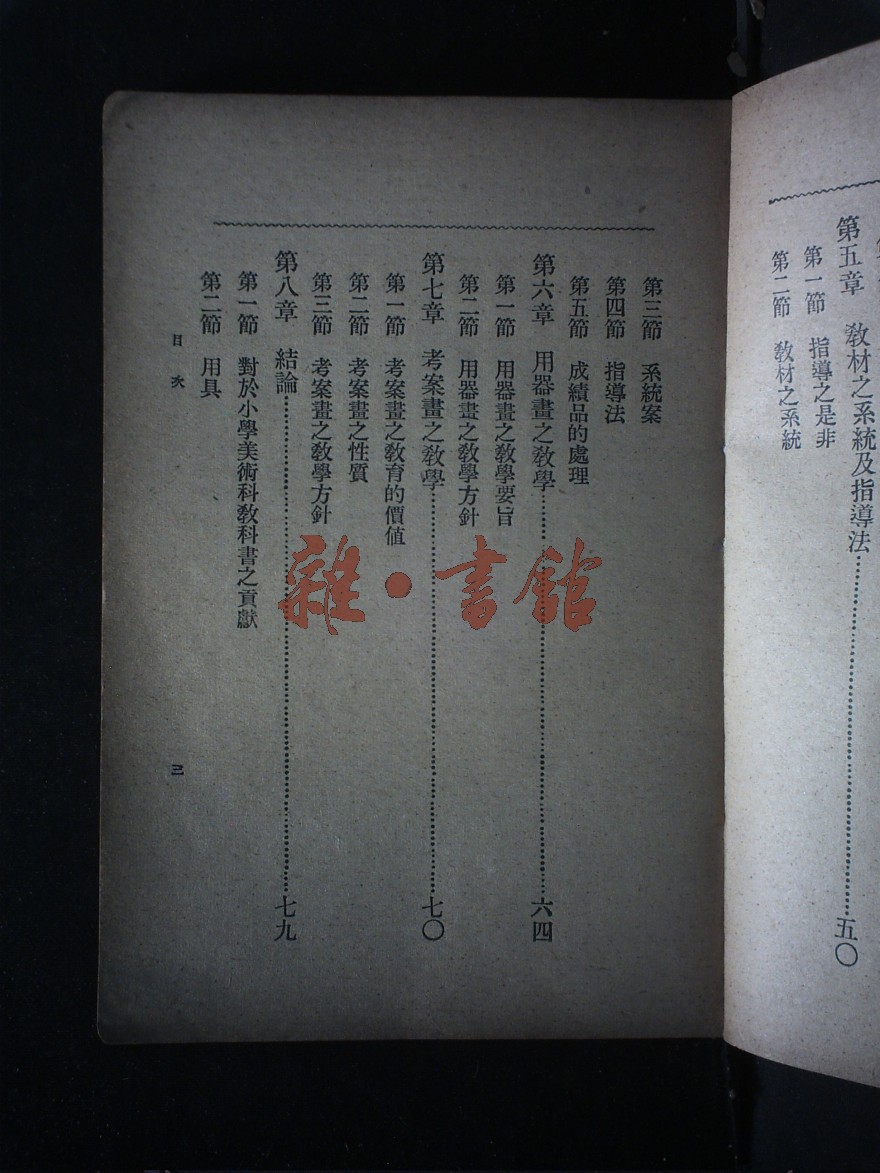 第五章 教材之系統及指導法……五〇
第一節 指導之是非
第二節 教材之系統
第三節 系統案
第四節 指導法
第五節 成績品的處理
第六章 用器畫之教學……六四
第一節 用器畫之教學要旨
第二節 用器畫之教學方針
第七章 考案畫之教學……七〇
第一節 考案畫之教育的價值
第二節 考案畫之性質
第三節 考案畫之教學方針
第八章 結論……七九
第一節 對於小學美術科教科書之貢獻
第二節 用具
目次
三
雜·書館